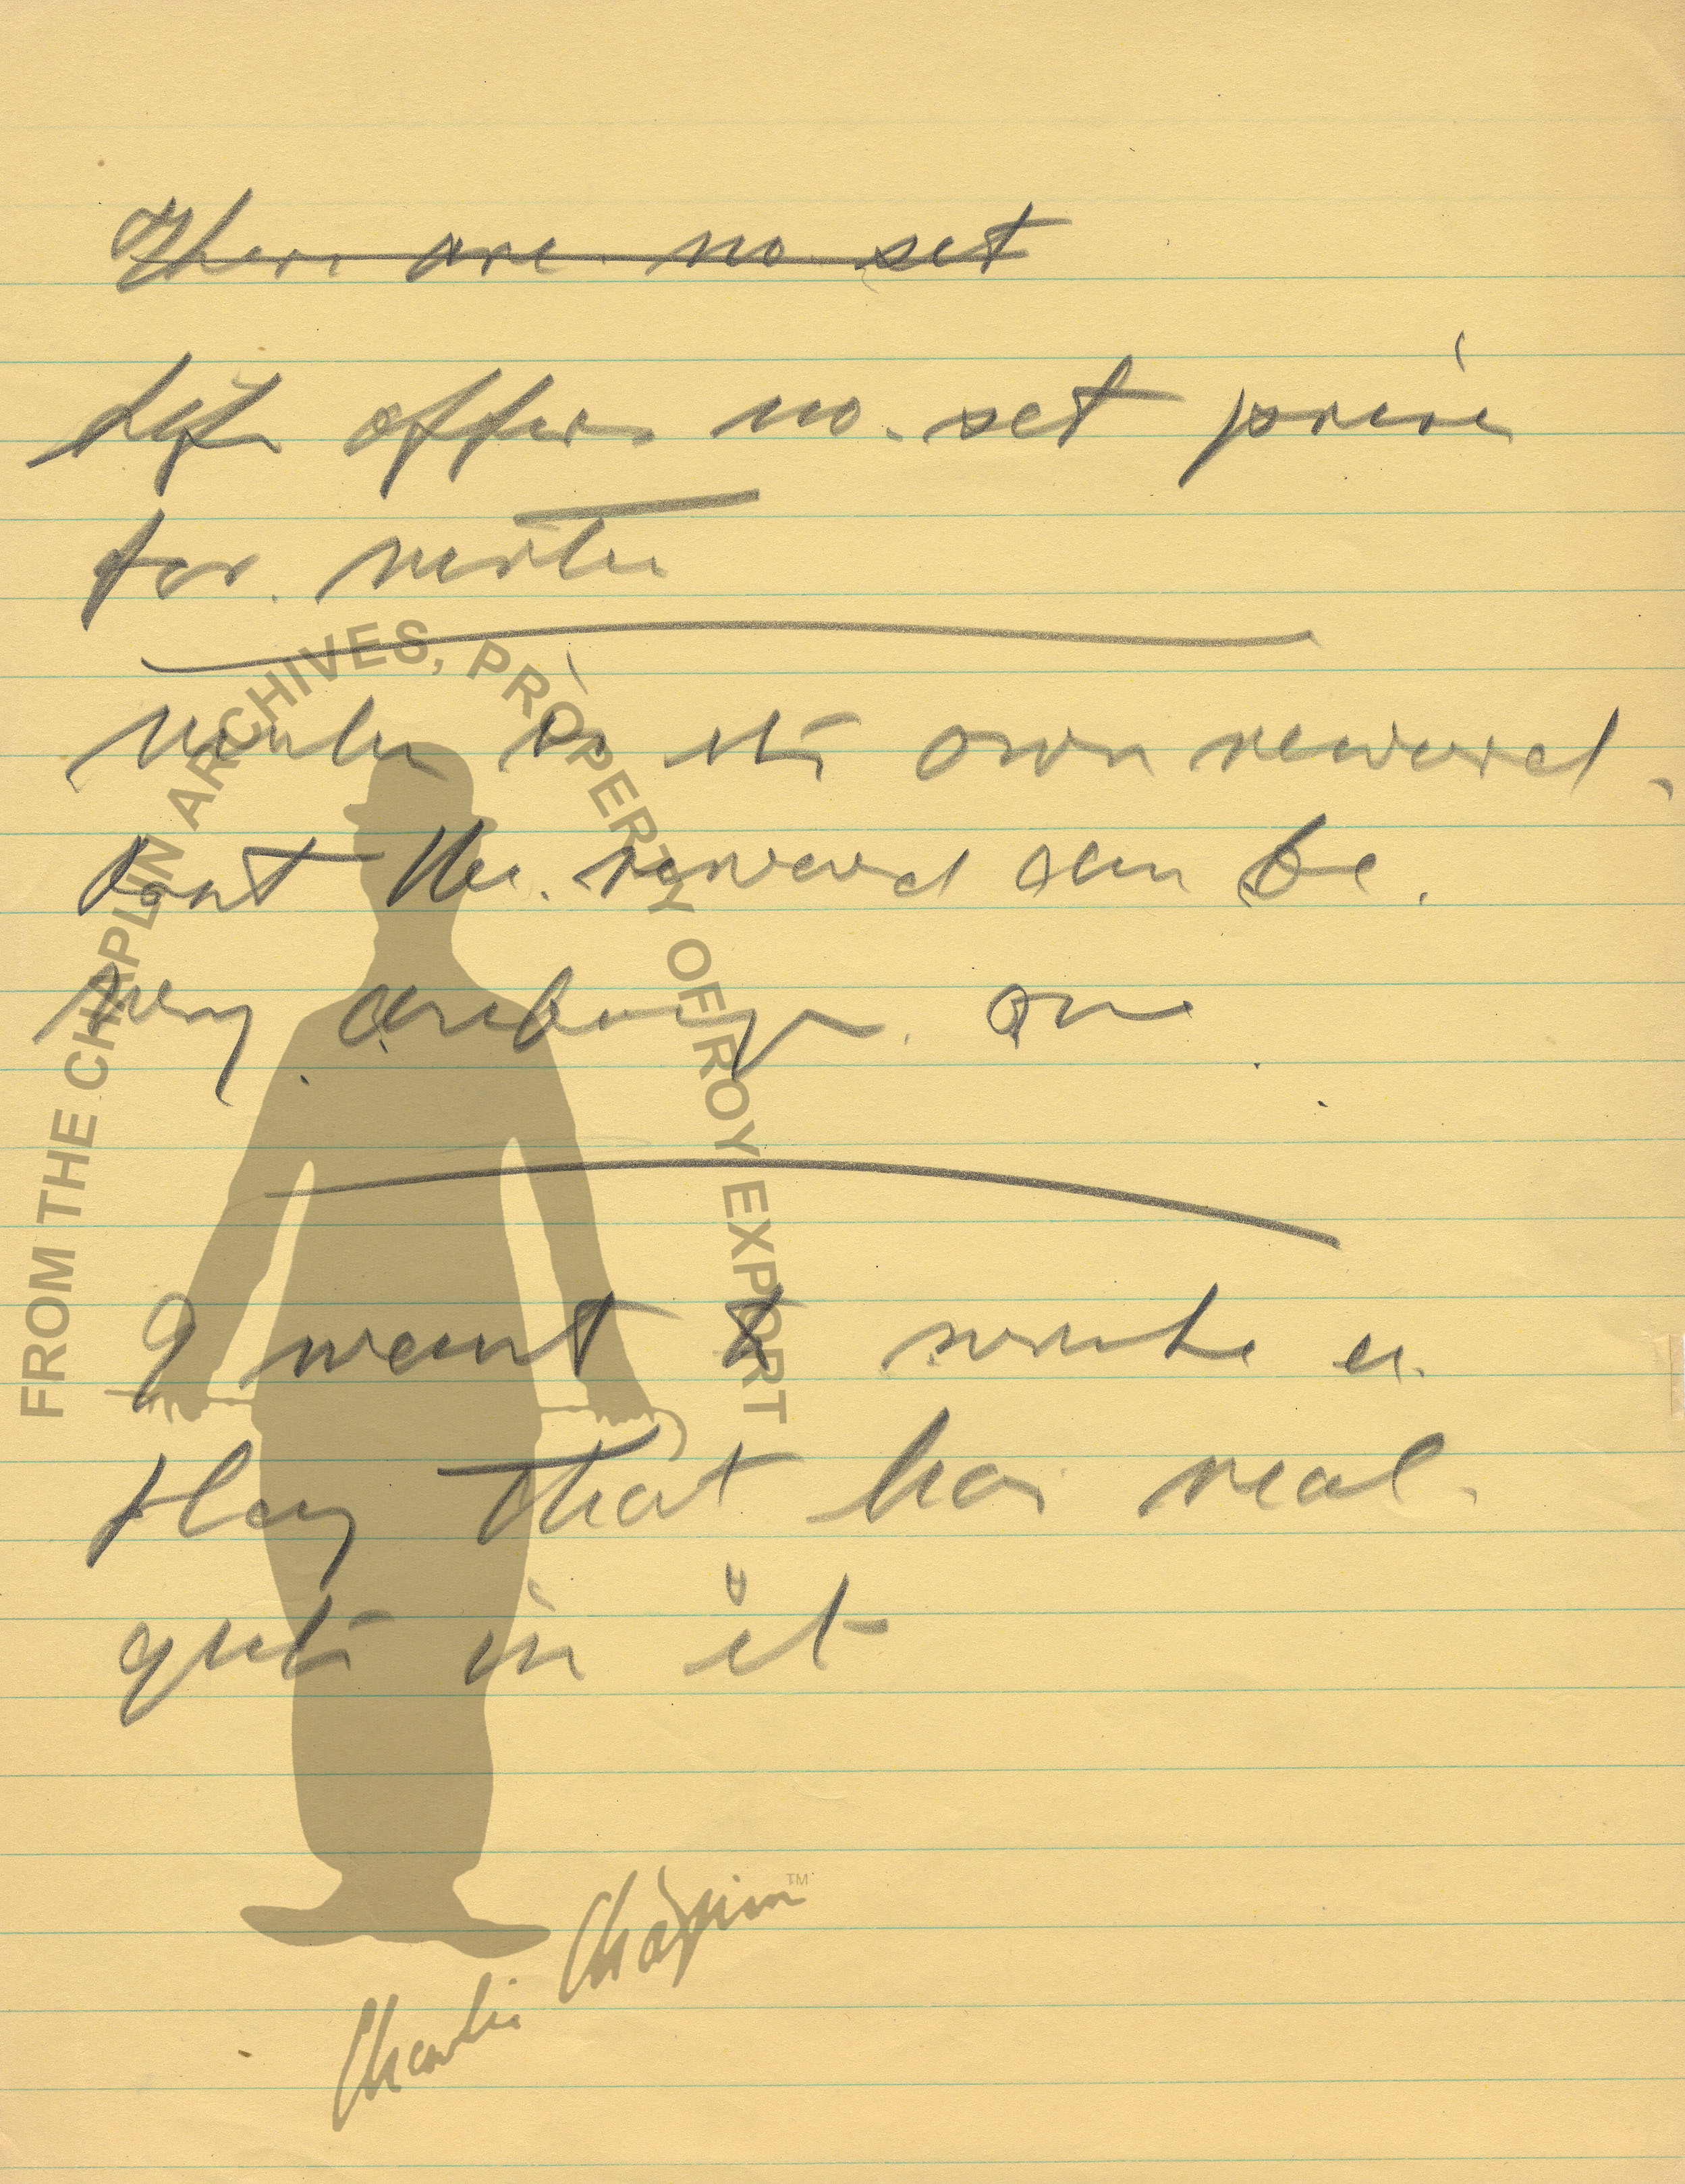 There are no set
Life offers no set price
for virtue
Virtue is its own reward.
but the reward can be
very
one
I want to write a
play that has real
guts in it
FROM THE CHAPLIN ARCHIVES, PROPERTY OF ROY EXPORT
Charlie Chaplin™